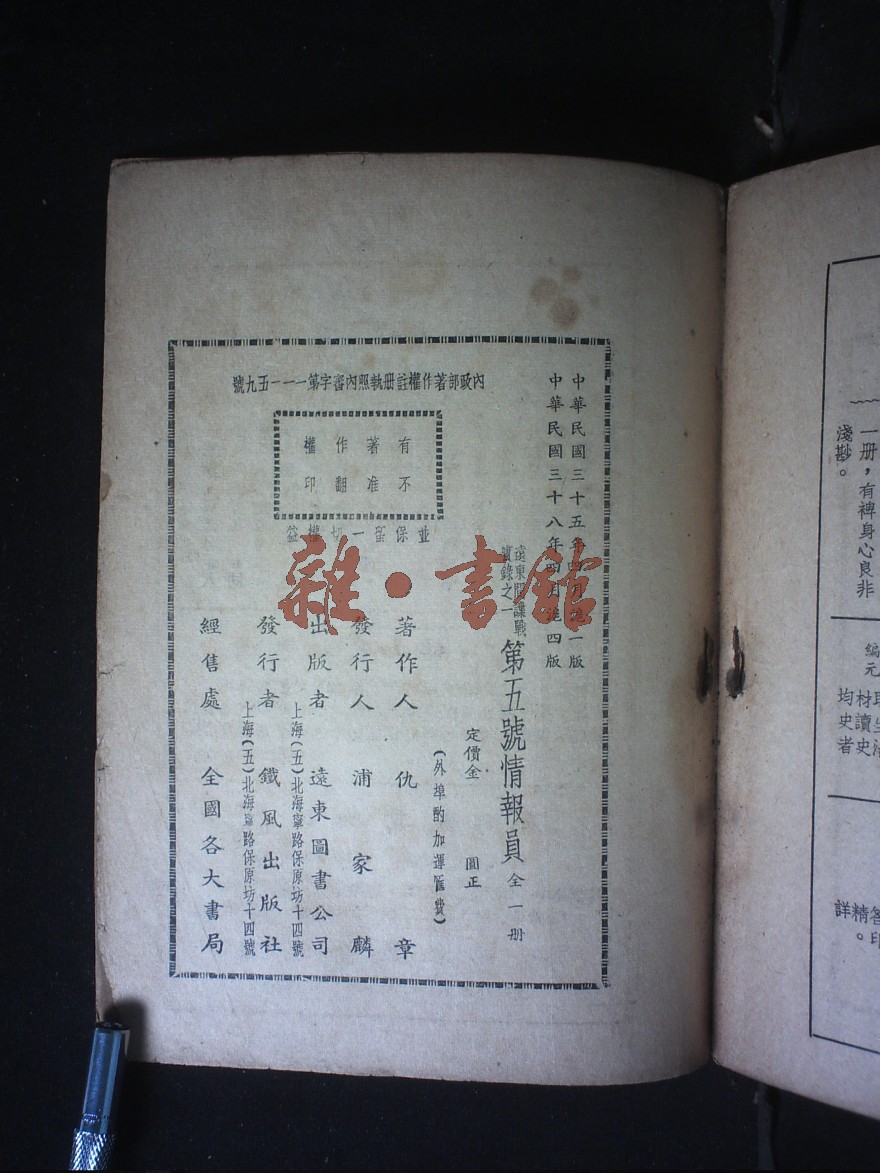 中華民國三十五年四月滬一版
中華民國三十八年四月滬四版
內政部著作權註册執照內審字第一一一五九號
有著作權
不准翻印
並保留一切權益
遠東間諜戰
實錄之一
第五號情報員 全一册
定價金 圓正
(外埠酌加運匯費)
著作人 仇章
發行人 浦家麟
出版者 遠東圖書公司
上海(五)北海寧路保原坊十四號
發行者 鐵風出版社
上海(五)北海寧路保原坊十四號
經售處 全國各大書局
雜·書館
一册，有裨身心良非
淺尠。
編
元
材讀史
均史者
精印
詳。